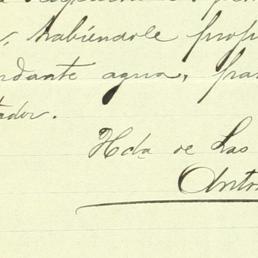 , habiéndole prop
ndante agua, fra
ador.
Hda de Las
Anto